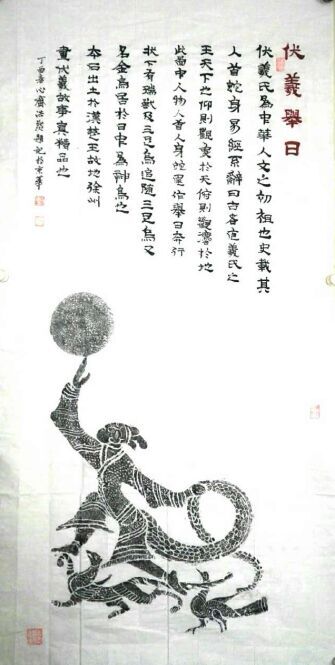 伏羲舉日
伏羲氏爲中華人文之初祖也史載其
人首蛇身易經系辭曰古者庖羲氏之
王天下也仰則觀象於天俯則觀灋於地
此畫中人物人首人身蛇尾作舉日奔行
狀下有瑞獸及三足烏追隨三足烏又
名金烏居於日中爲神鳥也
本石出土於漢楚王故地徐州
畫伏羲故事實精品也
丁酉春心齋題記於京華